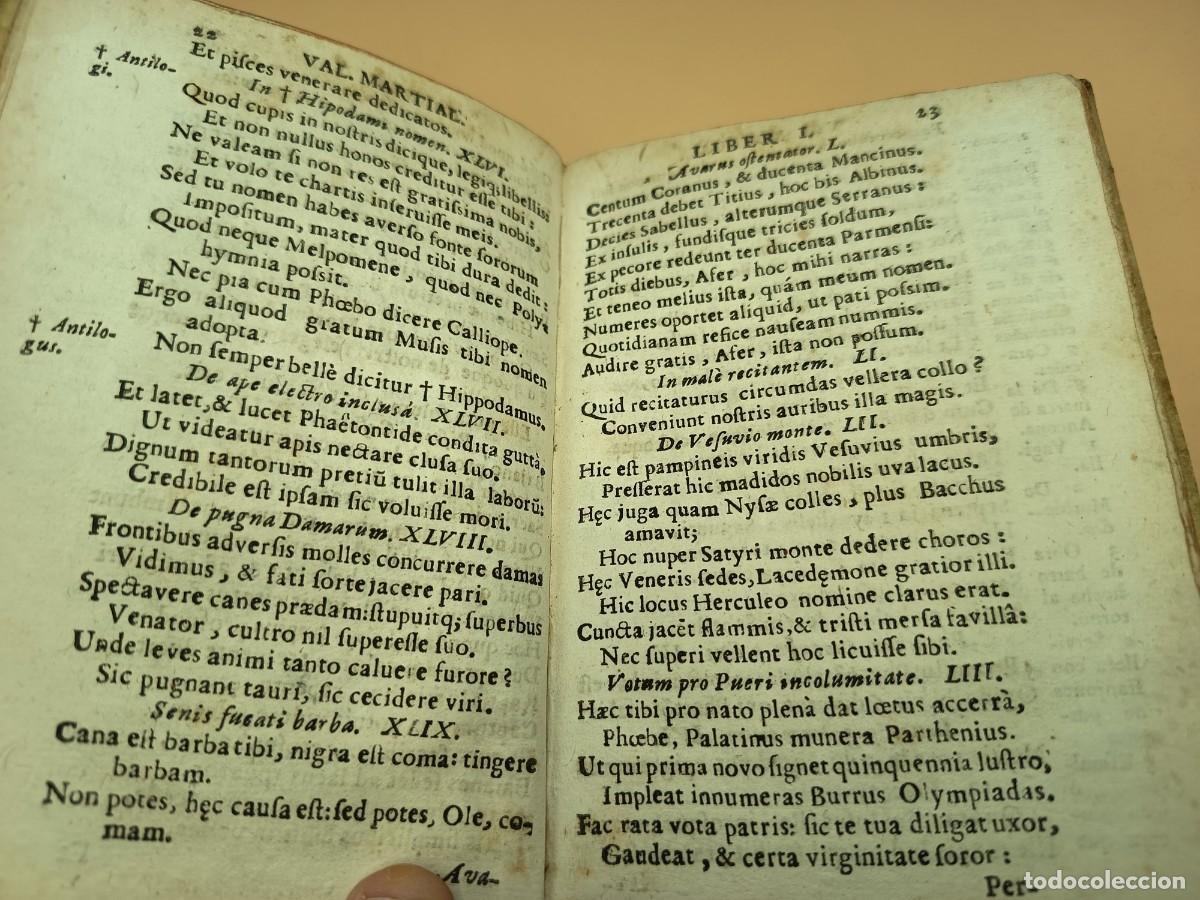 22
VAL. MARTIAL.
Et piſces venerare dedicatos.
In † Hipodami nomen. XLVI.
† Antilo-
gi.
Quod cupis in noſtris dicique, legiq; libellis:
Et non nullus honos creditur eſſe tibi:
Ne valeam ſi non res eſt gratiſſima nobis,
Et volo te chartis inſeruiſſe meis.
Sed tu nomen habes averſo fonte ſororum
Impoſitum, mater quod tibi dura dedit:
Quod neque Melpomene, quod nec Poly-
hymnia poſſit.
Nec pia cum Phœbo dicere Calliope.
Ergo aliquod gratum Muſis tibi nomen
adopta.
† Antilo-
gus.
Non ſemper bellè dicitur † Hippodamus.
De ape electro incluſâ. XLVII.
Et latet, & lucet Phaëtontide condita guttâ,
Ut videatur apis nectare cluſa ſuo.
Dignum tantorum pretiũ tulit illa laborũ:
Credibile eſt ipſam ſic voluiſſe mori.
De pugna Damarum. XLVIII.
Frontibus adverſis molles concurrere damas
Vidimus, & fati ſorte jacere pari.
Spectavere canes prædam: ſtupuitq; ſuperbus
Venator, cultro nil ſupereſſe ſuo.
Unde leves animi tanto caluere furore?
Sic pugnant tauri, ſic cecidere viri.
Senis fucati barba. XLIX.
Cana eſt barba tibi, nigra eſt coma: tingere
barbam.
Non potes, hęc cauſa eſt: ſed potes, Ole, co-
mam.
Ava-
LIBER I. 23
Avarus oſtentator. L.
Centum Coranus, & ducenta Mancinus.
Trecenta debet Titius, hoc bis Albinus.
Decies Sabellus, alterumque Serranus:
Ex inſulis, fundiſque tricies ſoldum,
Ex pecore redeunt ter ducenta Parmenſi:
Totis diebus, Afer, hoc mihi narras:
Et teneo melius iſta, quám meum nomen.
Numeres oportet aliquid, ut pati poſſim.
Quotidianam refice nauſeam nummis.
Audire gratis, Afer, iſta non poſſum.
In malè recitantem. LI.
Quid recitaturus circumdas vellera collo?
Conveniunt noſtris auribus illa magis.
De Veſuvio monte. LII.
Hic eſt pampineis viridis Veſuvius umbris,
Preſſerat hic madidos nobilis uva lacus.
Hęc juga quam Nyſæ colles, plus Bacchus
amavit;
Hoc nuper Satyri monte dedere choros:
Hęc Veneris ſedes, Lacedęmone gratior illi.
Hic locus Herculeo nomine clarus erat.
Cuncta jacẽt flammis, & triſti merſa favillâ:
Nec ſuperi vellent hoc licuiſſe ſibi.
Votum pro Pueri incolumitate. LIII.
Hæc tibi pro nato plenà dat lœtus accerrà,
Phœbe, Palatinus munera Parthenius.
Ut qui prima novo ſignet quinquennia luſtro,
Impleat innumeras Burrus Olympiadas.
Fac rata vota patris: ſic te tua diligat uxor,
Gaudeat, & certa virginitate ſoror:
Per-
todocoleccion